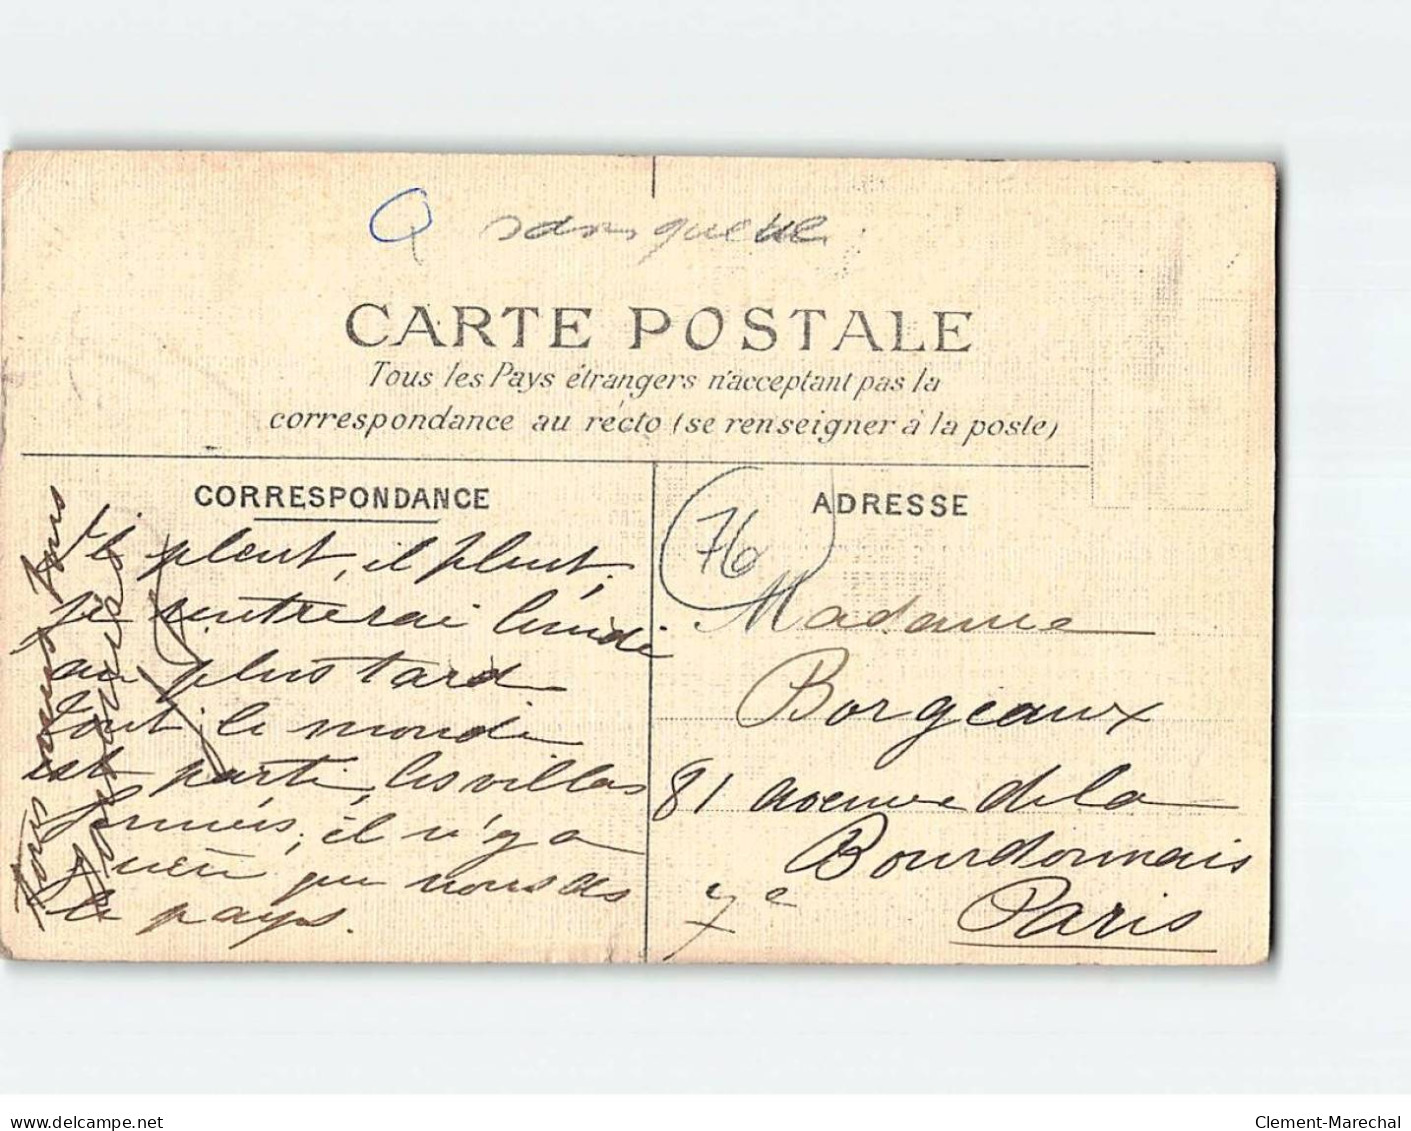 CARTE POSTALE
Tous les Pays étrangers n'acceptant pas la
correspondance au recto (se renseigner à la poste)
CORRESPONDANCE
il pleut, il pleut,
je rentrerai lundi
au plus tard
tout le monde
est parti, les villas
fermées, il n'y a
que nous ds
le pays.
Tous vous
ADRESSE
76
Madame
Borgeaux
81 avenue de la
Bourdonnais
7e Paris
delcampe.net
Clement-Marechal